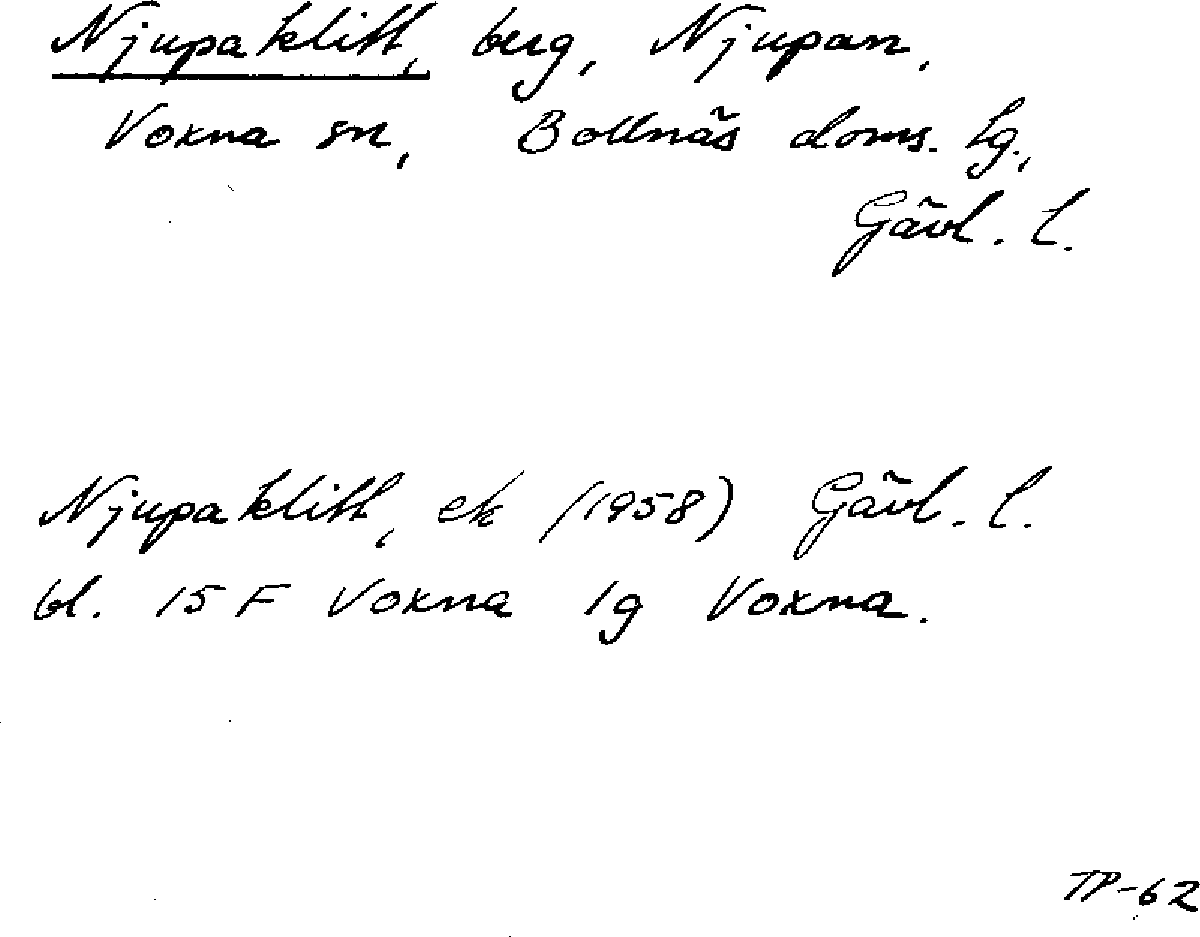 Njupaklitt, berg, Njupan,
Voxna sn, Bollnäs doms. lg.,
Gävl. l.
Njupaklitt, ek (1958) Gävl. l.
bl. 15 F Voxna 1g Voxna.
TP-62